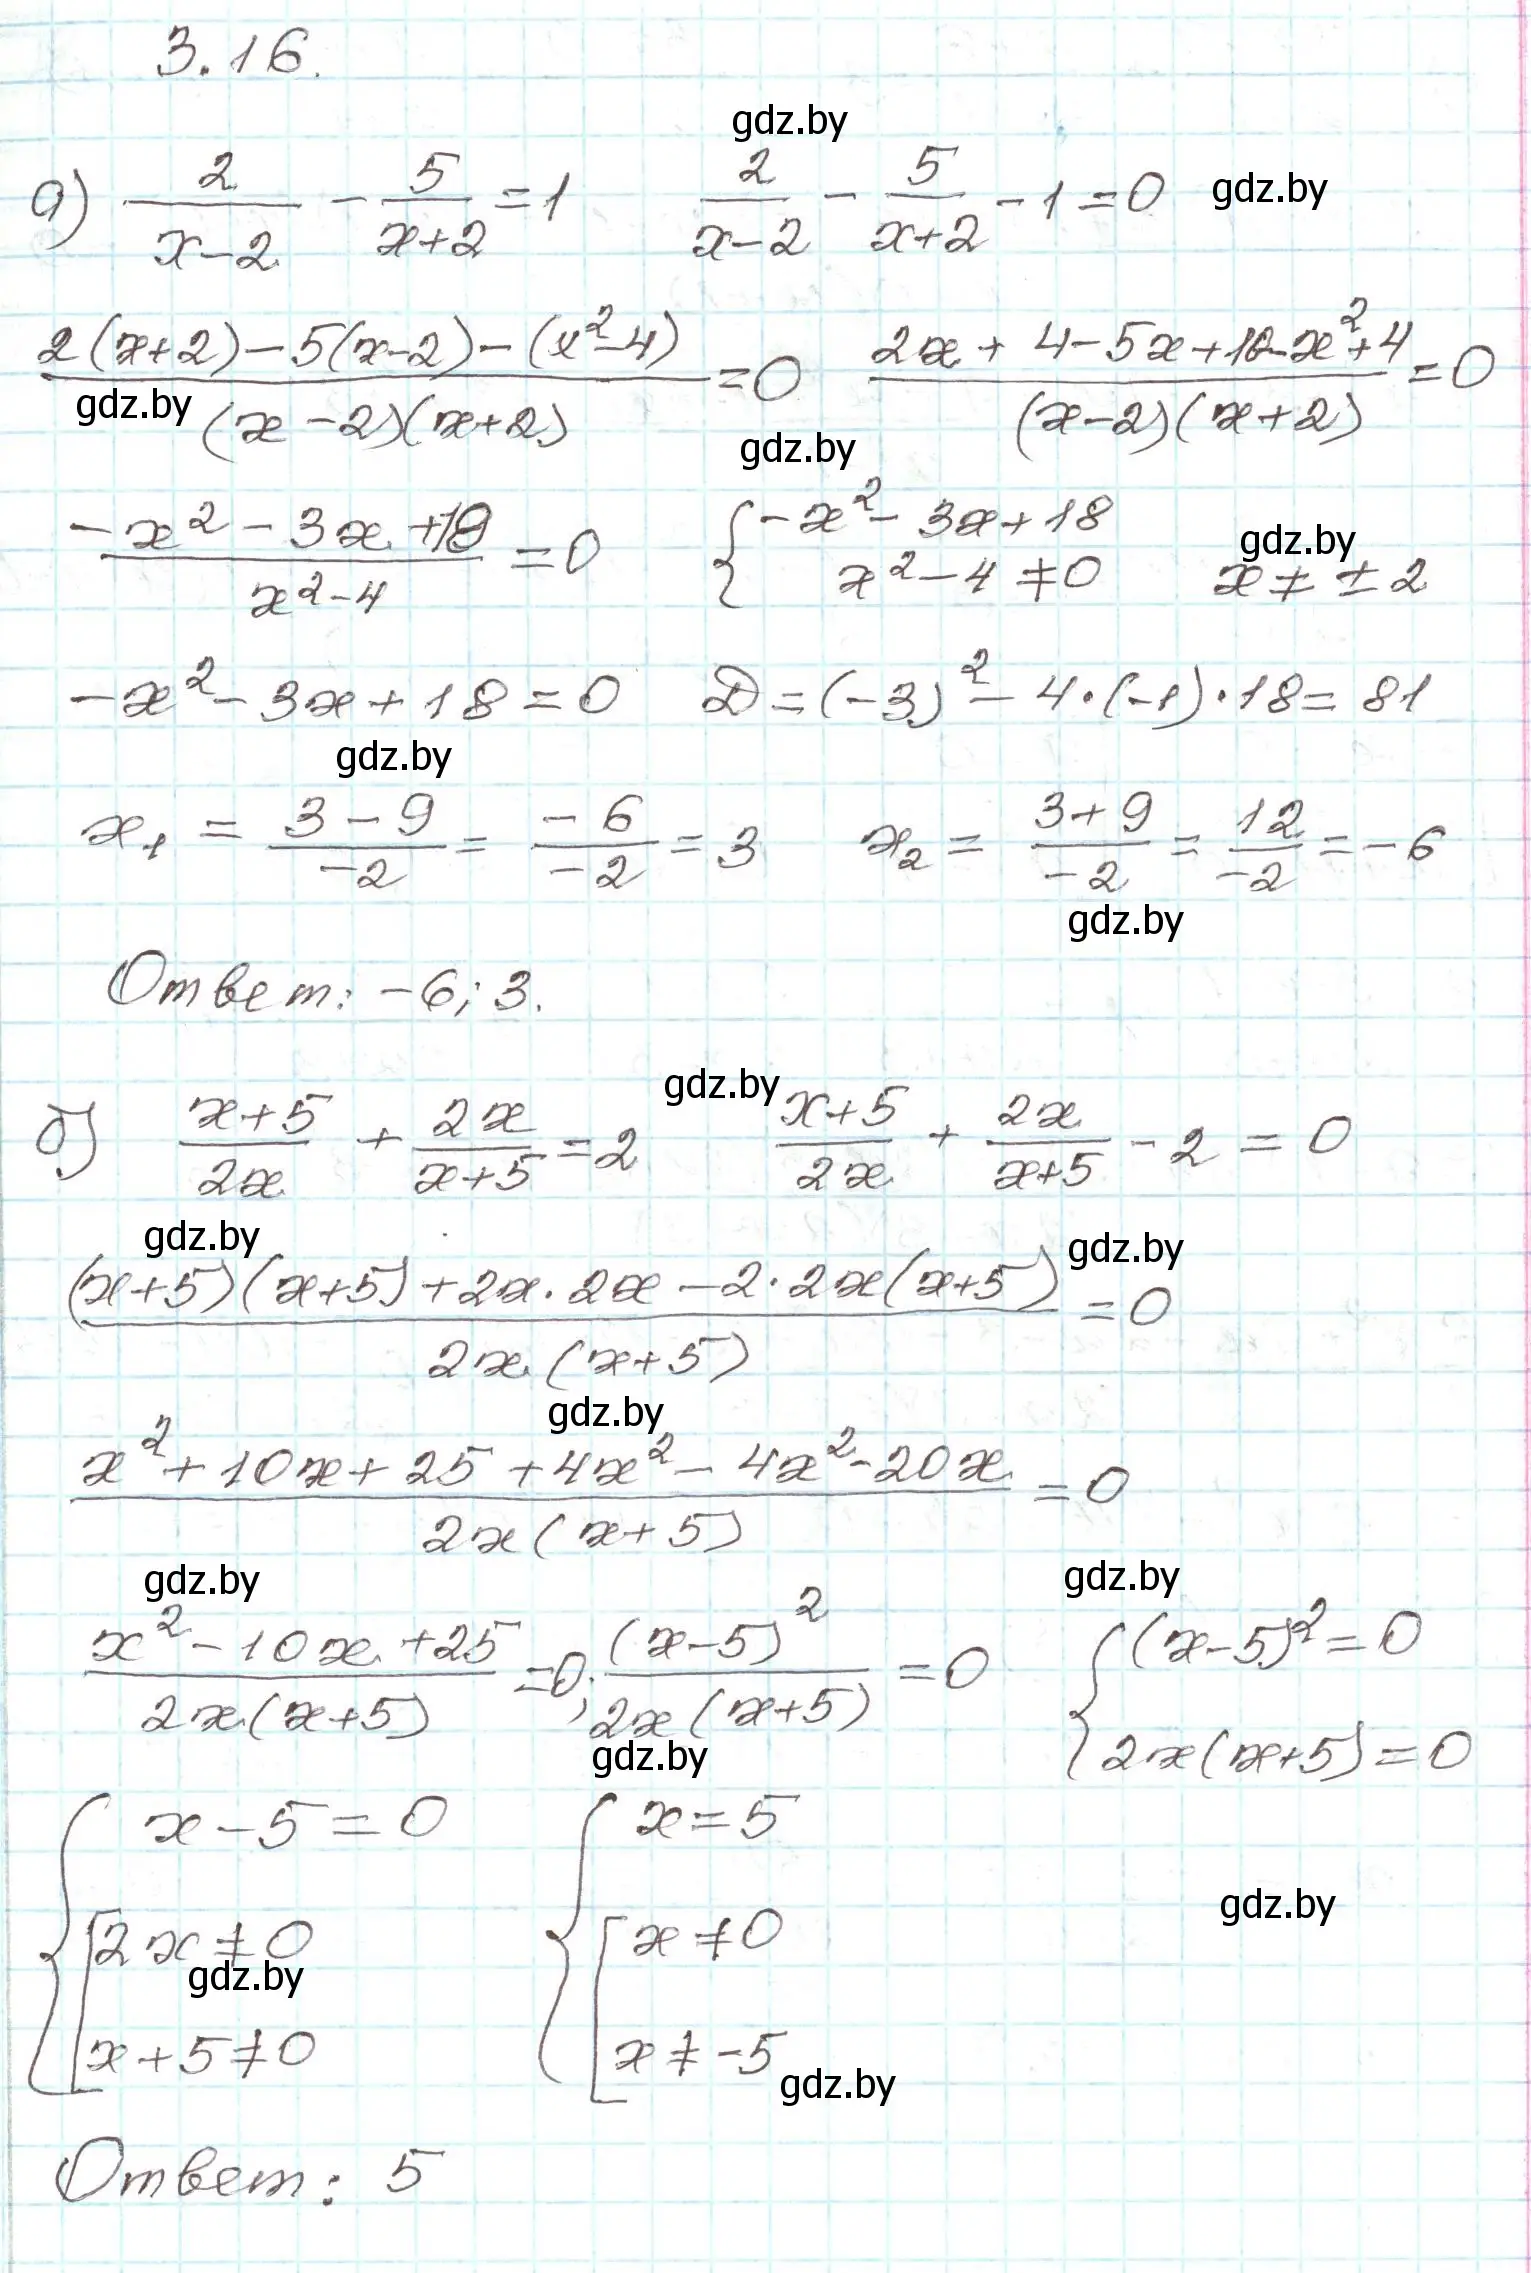 3.16.
gdz.by
а) 2/(x-2) - 5/(x+2) = 1   2/(x-2) - 5/(x+2) - 1 = 0 gdz.by
(2(x+2) - 5(x-2) - (x²-4))/((x-2)(x+2)) = 0   (2x + 4 - 5x + 10 - x² + 4)/((x-2)(x+2)) = 0
gdz.by gdz.by
(-x² - 3x + 18)/(x²-4) = 0   { -x² - 3x + 18
x² - 4 ≠ 0   x ≠ ±2 gdz.by
-x² - 3x + 18 = 0   D = (-3)² - 4·(-1)·18 = 81
gdz.by
x₁ = (3-9)/(-2) = (-6)/(-2) = 3   x₂ = (3+9)/(-2) = 12/(-2) = -6
gdz.by
Ответ: -6; 3.
gdz.by
б) (x+5)/(2x) + 2x/(x+5) = 2   (x+5)/(2x) + 2x/(x+5) - 2 = 0
gdz.by gdz.by
((x+5)(x+5) + 2x·2x - 2·2x(x+5))/(2x(x+5)) = 0
gdz.by
(x² + 10x + 25 + 4x² - 4x² - 20x)/(2x(x+5)) = 0
gdz.by gdz.by
(x² - 10x + 25)/(2x(x+5)) = 0; (x-5)²/(2x(x+5)) = 0   { (x-5)² = 0
2x(x+5) = 0
gdz.by
{ x - 5 = 0   { x = 5
gdz.by
[ 2x ≠ 0   [ x ≠ 0
gdz.by
x + 5 ≠ 0   x ≠ -5
gdz.by
Ответ: 5